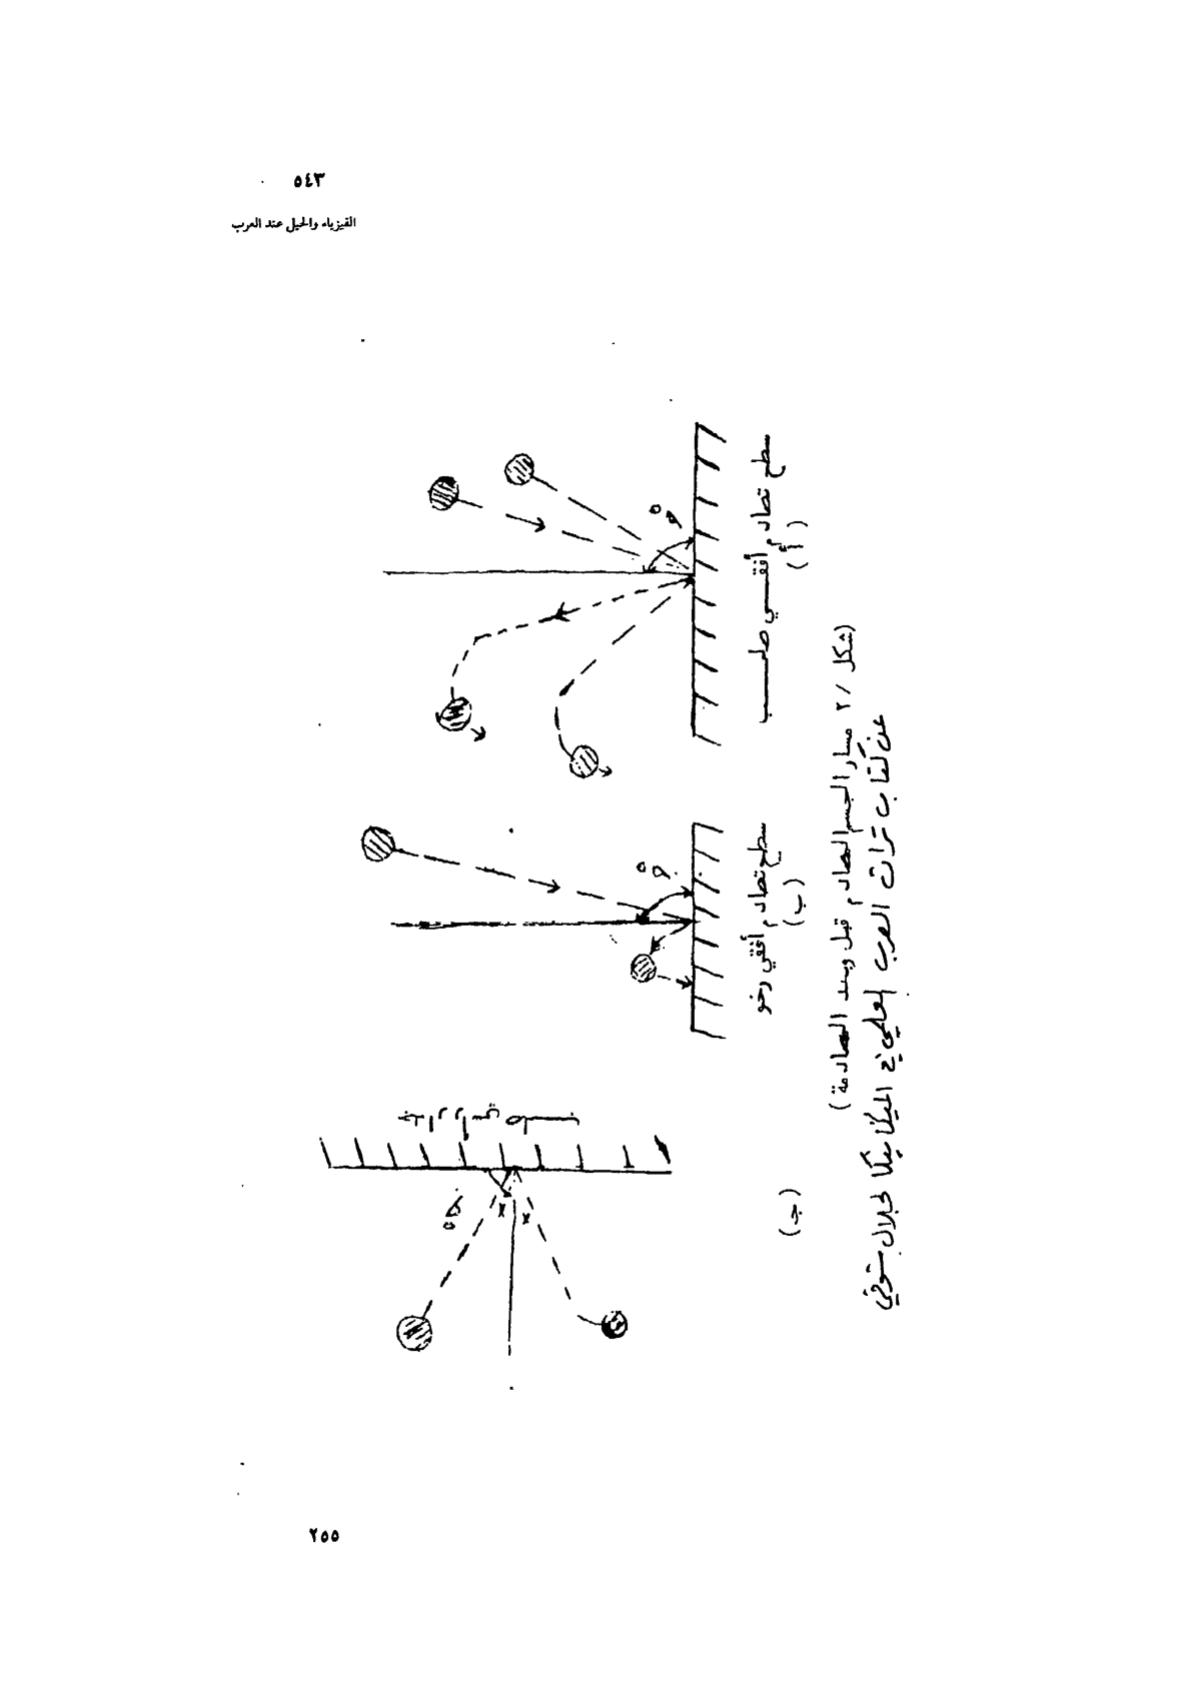 ٥٤٣
الفيزياء والحيل عند العرب
سطح تصادم أفقي صلب
٩٠°
(أ)
سطح تصادم أفقي رخو
٩٠°
(ب)
(ج)
(شكل / ٢ مسار الجسم المصادم قبل وبعد المصادمة)
عن كتاب تراث العرب العلمي في الميكانيكا لجلال شوقي
x x
٢٥٥